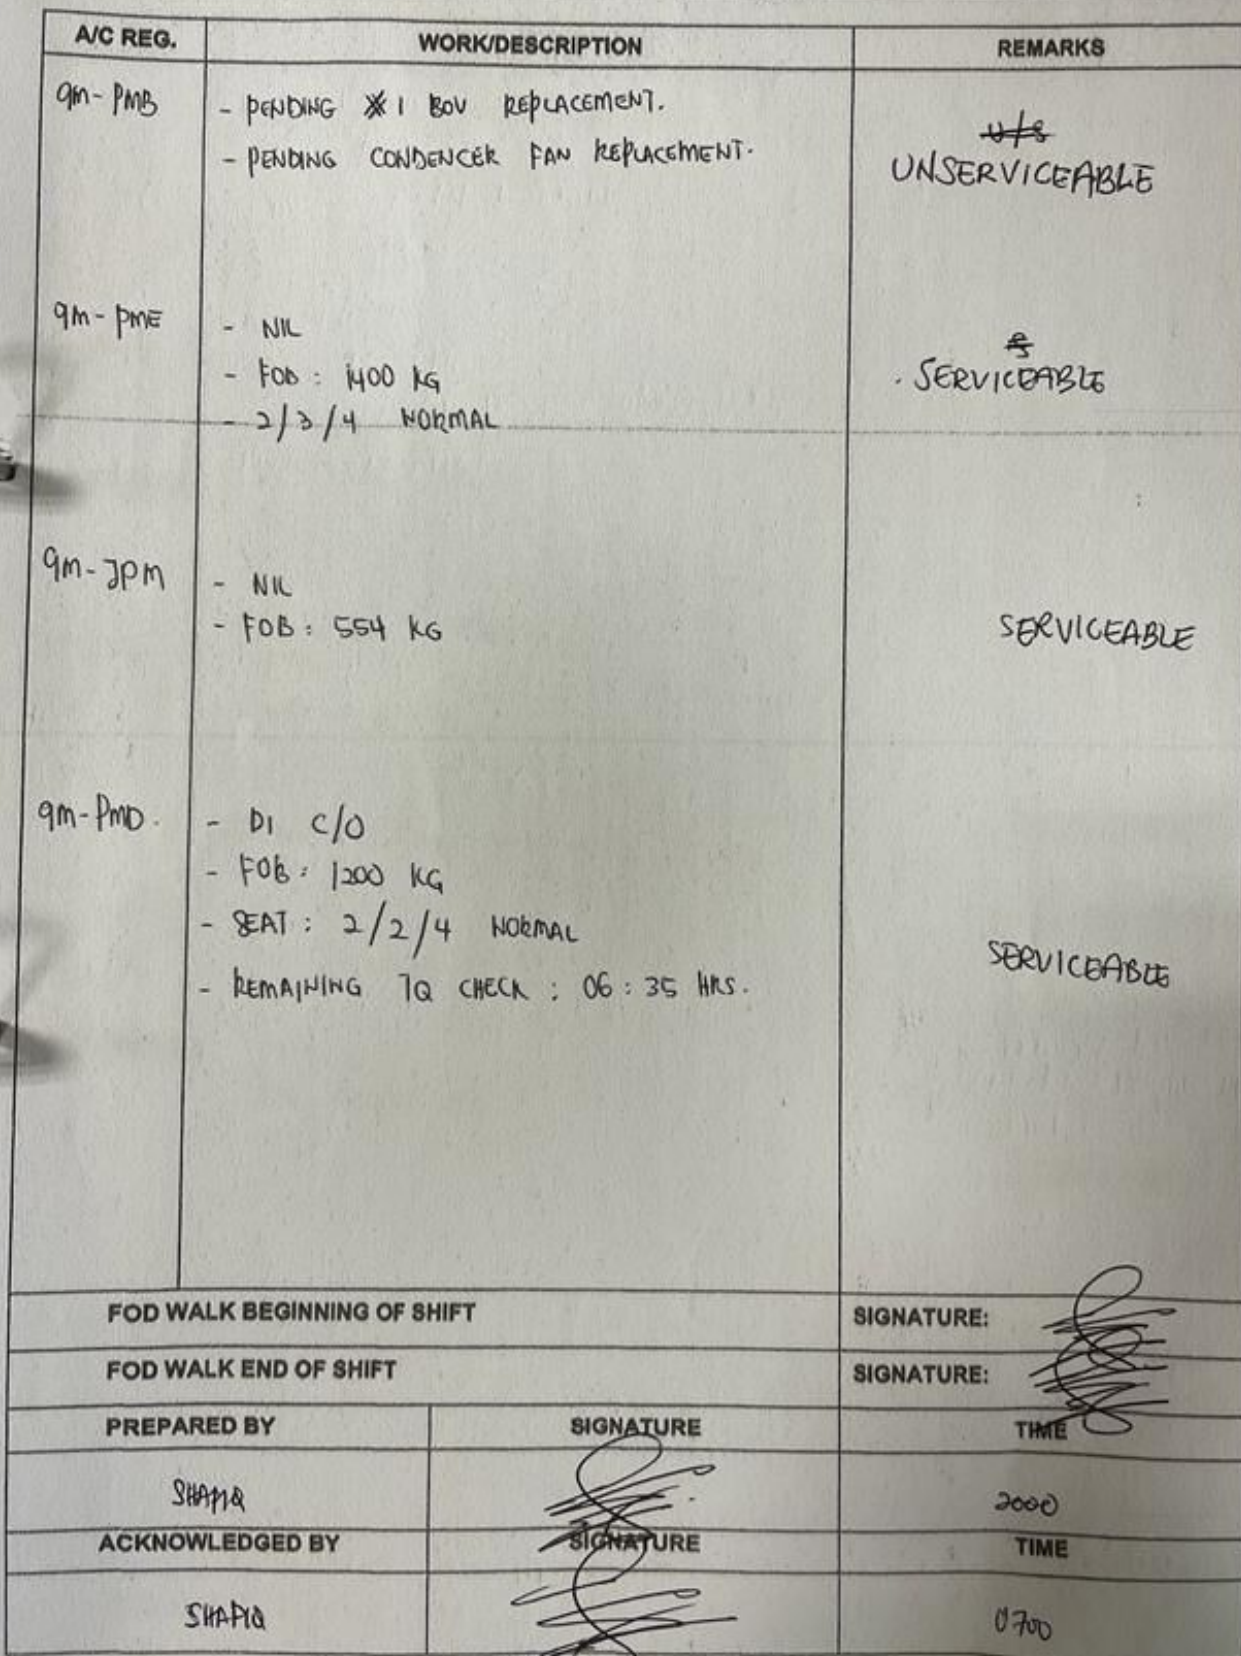 A/C REG. WORK/DESCRIPTION REMARKS
9M-PMB - PENDING #1 BOV REPLACEMENT.
U/S
- PENDING CONDENCER FAN REPLACEMENT.
UNSERVICEABLE
9M-PME - NIL
- FOB : 1400 KG
SERVICEABLE
- 2/3/4 NORMAL
9M-JPM - NIL
- FOB : 554 KG
SERVICEABLE
9M-PMD. - DI C/O
- FOB : 1200 KG
- SEAT : 2/2/4 NORMAL
SERVICEABLE
- REMAINING CHECK : 06 : 35 HRS.
FOD WALK BEGINNING OF SHIFT SIGNATURE:
FOD WALK END OF SHIFT SIGNATURE:
PREPARED BY SIGNATURE TIME
SHAFIQ 2000
ACKNOWLEDGED BY SIGNATURE TIME
SHAFIQ 0700